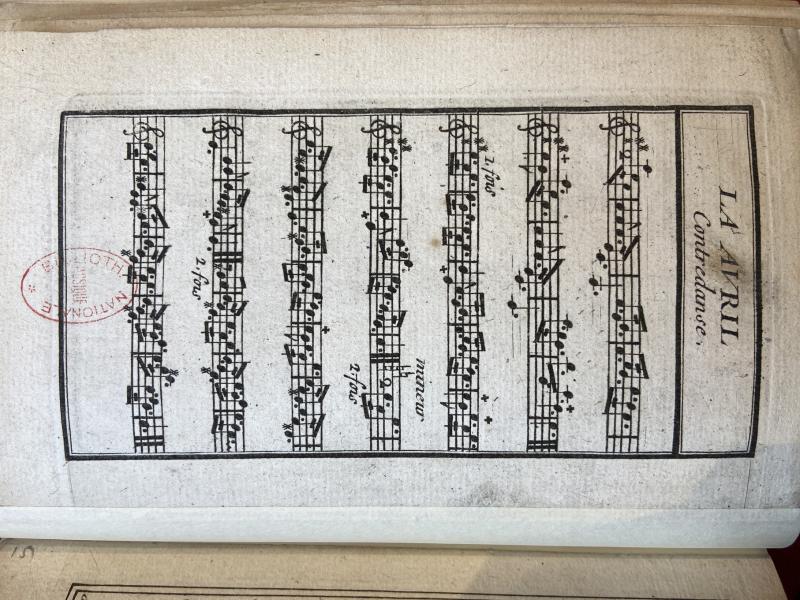 LA AVRIL
Contredanse.
2. fois
mineur
2. fois
2. fois
BIBLIOTH
MUSIQUE
NATIONALE